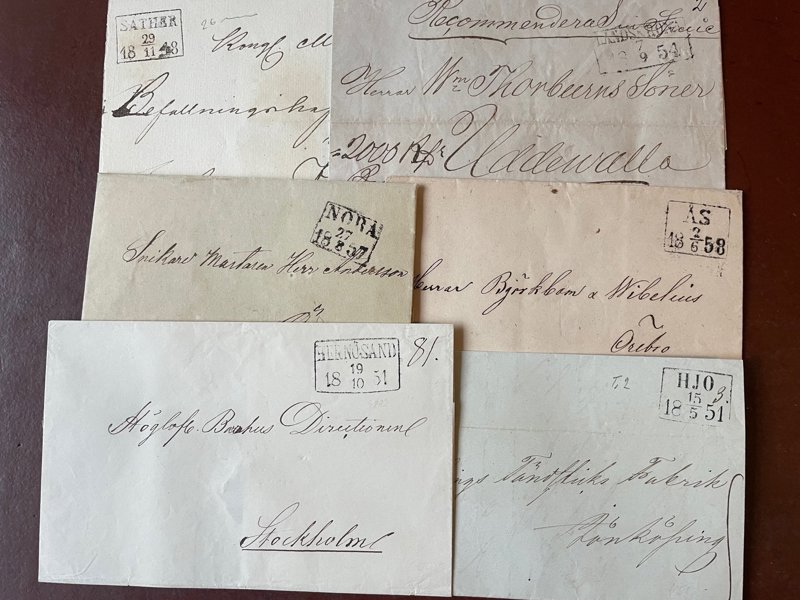 SÄTHER
29
18 11 48
26
Kongl.
Befallningshaf
Recommenderas
2
7
18 9 54
Herrar Wm Thorburns Söner
2000
Uddewalla
NORA
27
18 8 57
Snikare Herr Andersson
ÅS
2
18 6 58
Herrar Björkbom & Wibelius
Örebro
HERNÖSAND
19
18 10 51
81.
Directionen
Stockholm
T2
HJO
15
18 5 51
3.
Tändsticks Fabrik
Jönköping